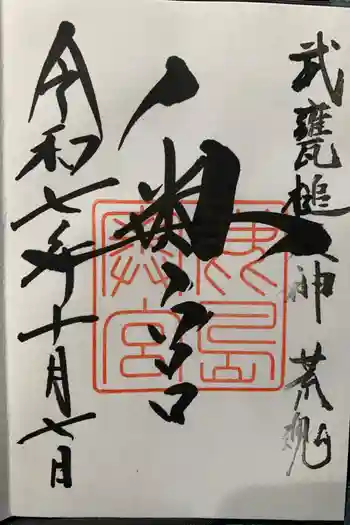 武甕槌大神 荒魂
奥宮
鹿島
奥宮
令和七年十月七日